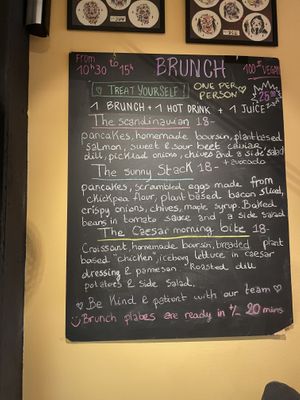 From 10h30 to 15h
BRUNCH
100% VEGAN
♡ TREAT YOURSELF!
ONE PER PERSON
25.00
1 BRUNCH + 1 HOT DRINK + 1 JUICE
The scandinavian 18-
pancakes, homemade boursin, plant based
salmon, sweet & sour beet caviar,
dill, pickled onions, chives and a side salad
The sunny Stack 18-
+ avocado
pancakes, scrambled eggs made from
chickpea flour, plant based bacon sliced,
crispy onions, chives, maple syrup. Baked
beans in tomato sauce and a side salad
The Caesar morning bite 18-
Croissant, homemade boursin, breaded plant
based "chicken", iceberg lettuce in caesar
dressing & parmesan. Roasted dill
potatoes & side salad.
♡ Be Kind & patient with our team ♡
Brunch plates are ready in +/- 20 mins